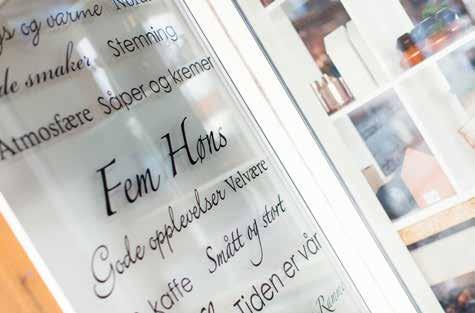 og varme
de smaker Stemning
Atmosfære Såper og kremer
Fem Høns
Gode opplevelser Velvære
kaffe Smått og stort
Tiden er vår